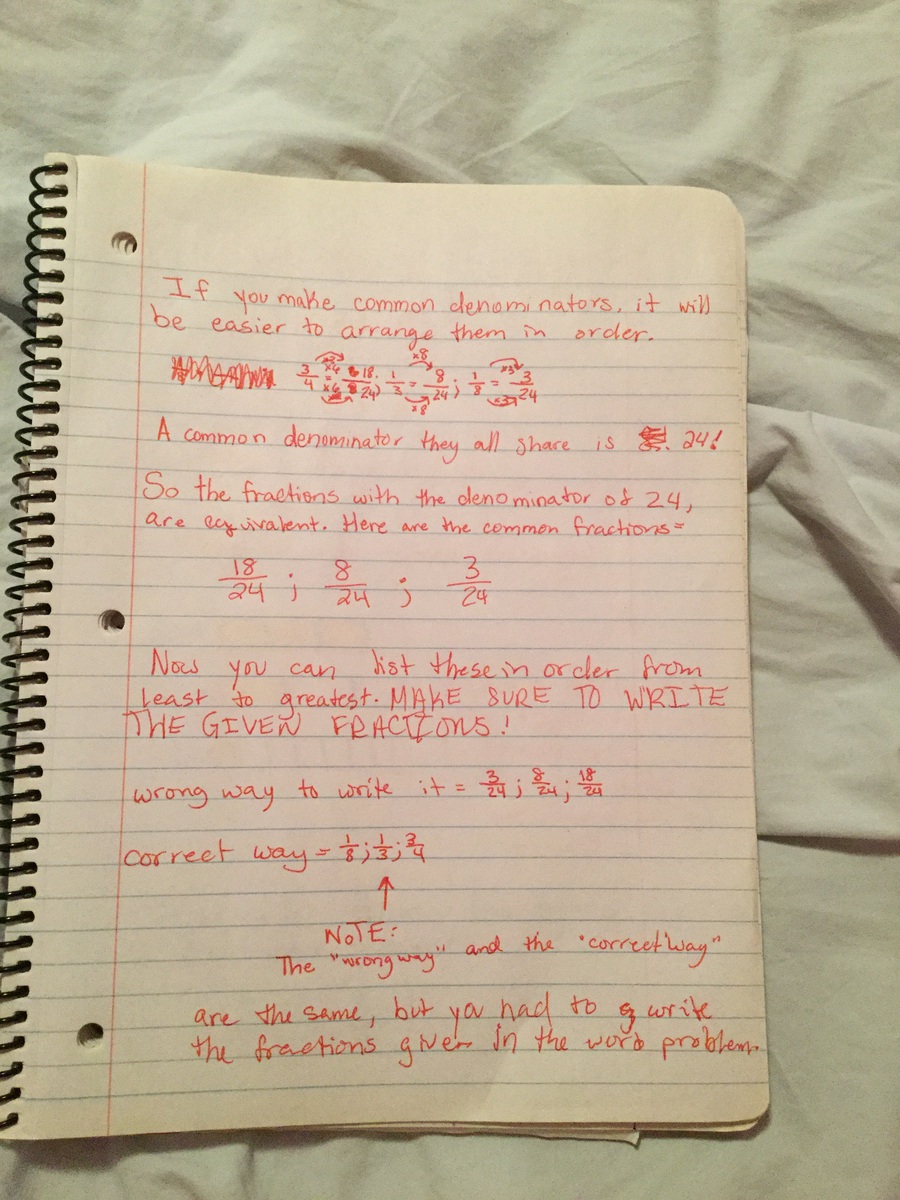 If you make common denominators, it will
be easier to arrange them in order.
3/4 = 18/24; 1/3 = 8/24; 1/8 = 3/24
A common denominator they all share is 24!
So the fractions with the denominator of 24,
are equivalent. Here are the common fractions=
18/24 ; 8/24 ; 3/24
Now you can list these in order from
least to greatest. MAKE SURE TO WRITE
THE GIVEN FRACTIONS!
wrong way to write it = 3/24; 8/24; 18/24
correct way = 1/8; 1/3; 3/4
↑
NOTE:
The "wrong way" and the "correct way"
are the same, but you had to write
the fractions given in the word problem.